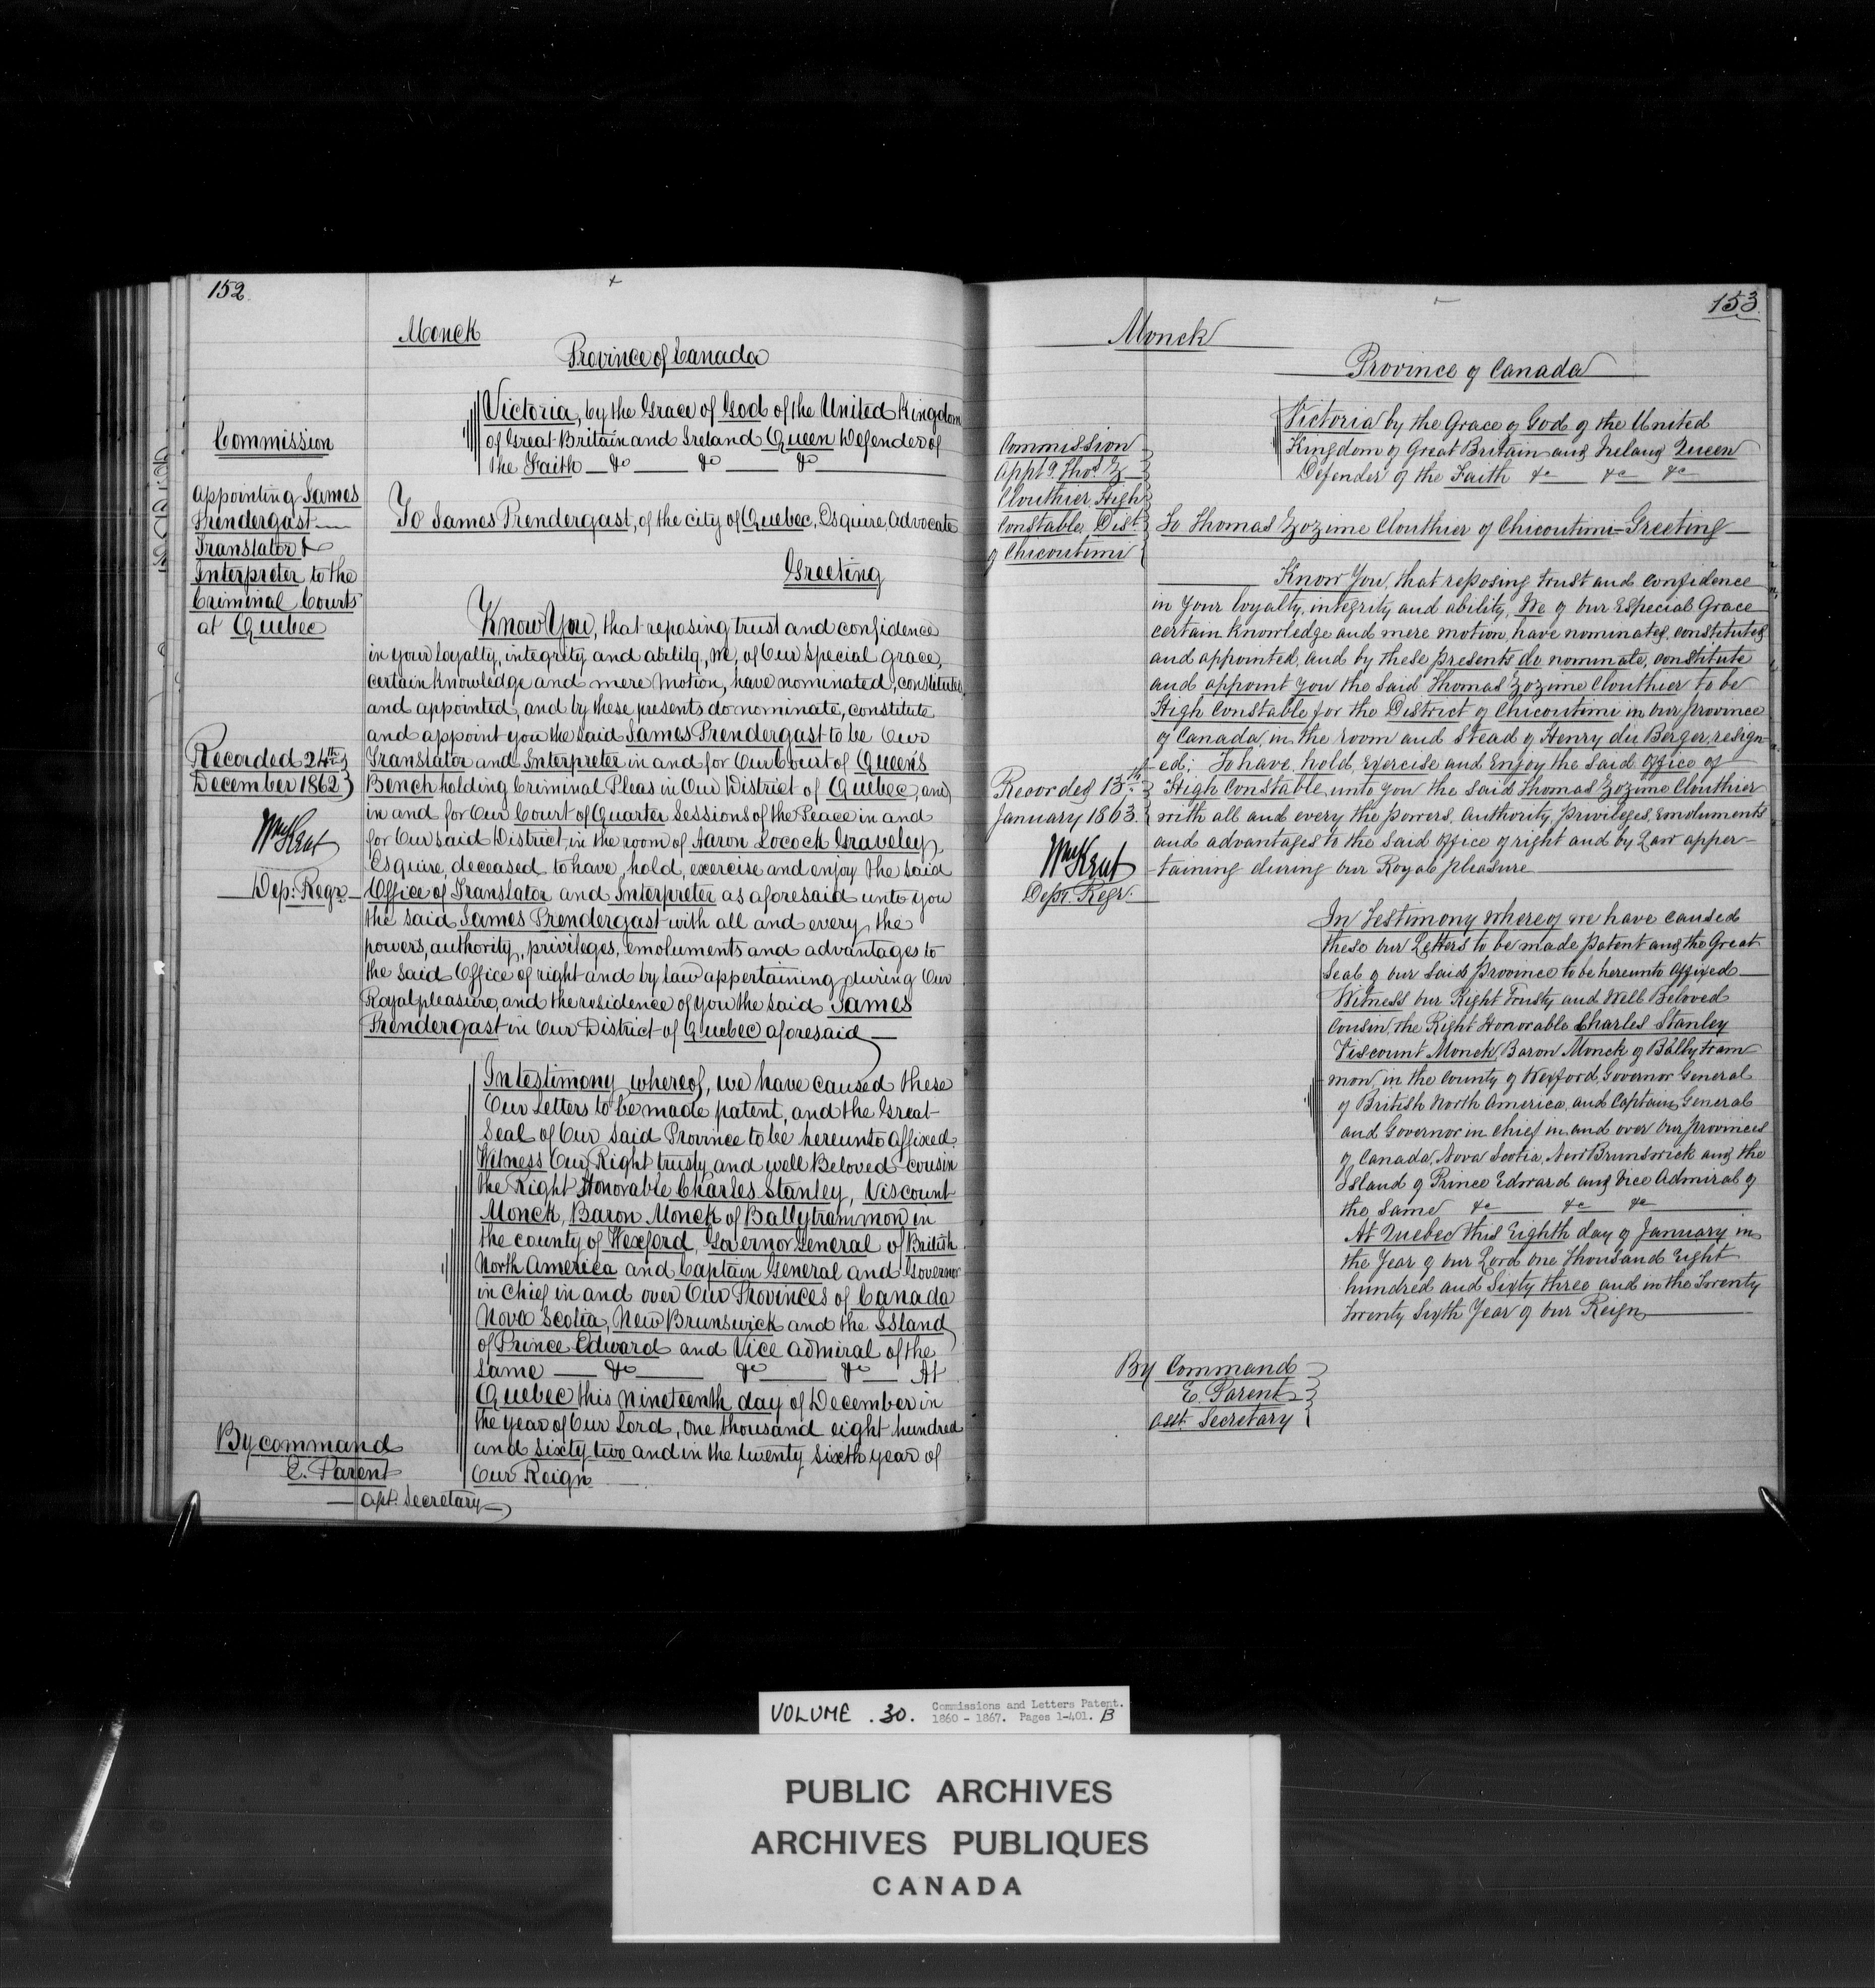 152
Monck
Province of Canada
Victoria, by the Grace of God of the United Kingdom
of Great Britain and Ireland Queen Defender of
the Faith — &c — &c — &c
Commission
appointing James
Prendergast
Translator &
Interpreter to the
Criminal Courts
at Quebec
To James Prendergast, of the city of Quebec, Esquire, Advocate
Greeting
Know You, that reposing trust and confidence
in your loyalty, integrity and ability, we, of Our special grace,
certain knowledge and mere motion, have nominated, constituted,
and appointed, and by these presents do nominate, constitute
and appoint you the said James Prendergast to be Our
Translator and Interpreter in and for Our Court of Queen's
Bench holding Criminal Pleas in Our District of Quebec, and
in and for Our Court of Quarter Sessions of the Peace in and
for Our said District, in the room of Aaron Locock Graveley,
Esquire, deceased, to have, hold, exercise and enjoy the said
Office of Translator and Interpreter as aforesaid unto you
the said James Prendergast with all and every the
powers, authority, privileges, emoluments and advantages to
the said Office of right and by law appertaining during Our
Royal pleasure, and the residence of you the said James
Prendergast in Our District of Quebec aforesaid —
Recorded 24th
December 1862
Wm Kent
Dep: Regr
In testimony whereof, we have caused these
Our Letters to be made patent, and the Great
Seal of Our said Province to be hereunto affixed.
Witness Our Right trusty and well Beloved cousin
the Right Honorable Charles Stanley, Viscount
Monck, Baron Monck of Ballytrammon in
the county of Wexford, Governor General of British
North America and Captain General and Governor
in Chief in and over Our Provinces of Canada
Nova Scotia, New Brunswick and the Island
of Prince Edward and Vice Admiral of the
same — &c — &c — &c — At
Quebec this nineteenth day of December in
the year of Our Lord, one thousand eight hundred
and sixty two and in the twenty sixth year of
Our Reign
By command
E. Parent
Asst. Secretary
153
Monck
Province of Canada
Victoria by the Grace of God of the United
Kingdom of Great Britain and Ireland Queen
Defender of the Faith &c — &c — &c
Commission
appt g Thos Z
Clouthier High
Constable Dist.
of Chicoutimi
To Thomas Zozime Clouthier of Chicoutimi — Greeting
Know You, that reposing trust and confidence
in Your loyalty, integrity and ability, We of our Especial Grace
certain Knowledge and mere motion, have nominated, constituted
and appointed, and by these presents do nominate, constitute
and appoint you the Said Thomas Zozime Clouthier to be
High Constable for the District of Chicoutimi in our province
of Canada, in the room and Stead of Henry du Berger, resign-
ed; To have, hold, Exercise and Enjoy the Said Office of
High Constable unto you the Said Thomas Zozime Clouthier
with all and every the powers, Authority, privileges, Emoluments
and advantages to the Said Office of right and by Law apper-
taining during our Royal pleasure
Recorded 13th
January 1863.
Wm Kent
Depy. Regr.
In Testimony whereof we have caused
these our Letters to be made patent and the Great
Seal of our Said province to be hereunto affixed
Witness our Right Trusty and Well Beloved
Cousin, the Right Honorable Charles Stanley
Viscount Monck, Baron Monck of Ballytram-
mon, in the County of Wexford, Governor General
of British North America, and Captain General
and Governor in chief in and over our provinces
of Canada, Nova Scotia, New Brunswick and the
Island of Prince Edward and Vice Admiral of
the Same &c — &c — &c
At Quebec this Eighth day of January in
the Year of our Lord one Thousand Eight
hundred and Sixty three and in the Twenty
Twenty Sixth Year of our Reign
By Command
E. Parent
Asst. Secretary
VOLUME . 30. Commissions and Letters Patent.
1860 - 1867. Pages 1-401. B
PUBLIC ARCHIVES
ARCHIVES PUBLIQUES
CANADA